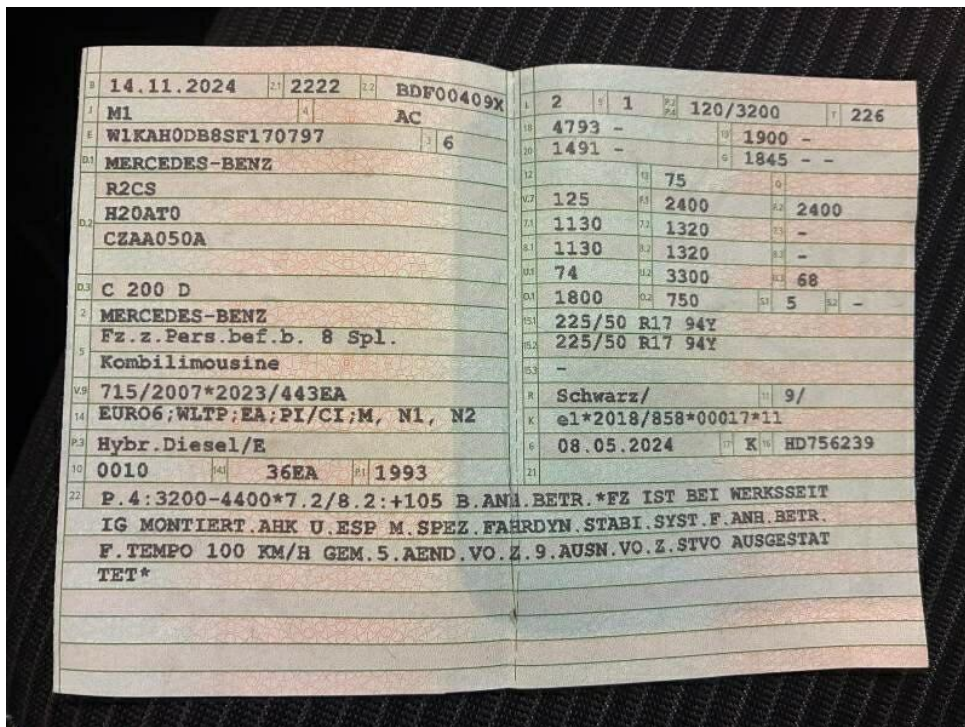 B 14.11.2024 2.1 2222 2.2 BDF00409X
J M1 4 AC
E W1KAH0DB8SF170797 3 6
D.1 MERCEDES-BENZ
R2CS
D.2 H20AT0
CZAA050A
D.3 C 200 D
2 MERCEDES-BENZ
5 Fz.z.Pers.bef.b. 8 Spl.
Kombilimousine
V.9 715/2007*2023/443EA
14 EURO6;WLTP;EA;PI/CI;M, N1, N2
P.3 Hybr.Diesel/E
10 0010 14.1 36EA P.1 1993
L 2 9 1 P.2 P.4 120/3200 T 226
18 4793 - 19 1900 -
20 1491 - G 1845 - -
12 13 75 Q
V.7 125 F.1 2400 F.2 2400
7.1 1130 7.2 1320 7.3 -
8.1 1130 8.2 1320 8.3 -
U.1 74 U.2 3300 U.3 68
O.1 1800 O.2 750 S.1 5 S.2 -
15.1 225/50 R17 94Y
15.2 225/50 R17 94Y
15.3 -
R Schwarz/ 11 9/
K e1*2018/858*00017*11
6 08.05.2024 17 K 16 HD756239
21
22 P.4:3200-4400*7.2/8.2:+105 B.ANH.BETR.*FZ IST BEI WERKSSEIT
IG MONTIERT.AHK U.ESP M.SPEZ.FAHRDYN.STABI.SYST.F.ANH.BETR.
F.TEMPO 100 KM/H GEM.5.AEND.VO.Z.9.AUSN.VO.Z.STVO AUSGESTAT
TET*